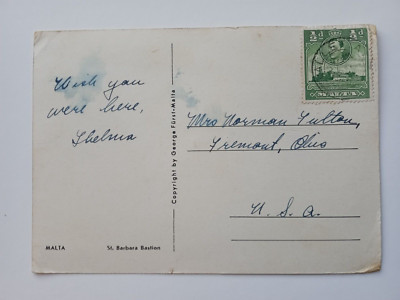 Wish you
were here,
Thelma
Copyright by George Fürst-Malta
½d ½d
MALTA
Mrs Norman Fulton,
Fremont, Ohio
U. S. A.
MALTA
St. Barbara Bastion